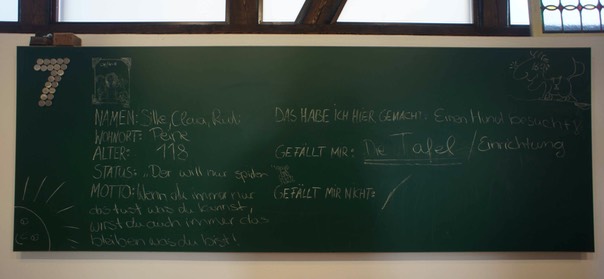 7
NAMEN: Silke, Clara, Rudi
WOHNORT: Peine
ALTER: 118
STATUS: "Der will nur spielen"
MOTTO: Wenn du immer nur
das tust was du kannst,
wirst du auch immer das
bleiben was du bist!
DAS HABE ICH HIER GEMACHT: Einen Hund besucht
GEFÄLLT MIR: Die Tafel / Einrichtung
GEFÄLLT MIR NICHT: /